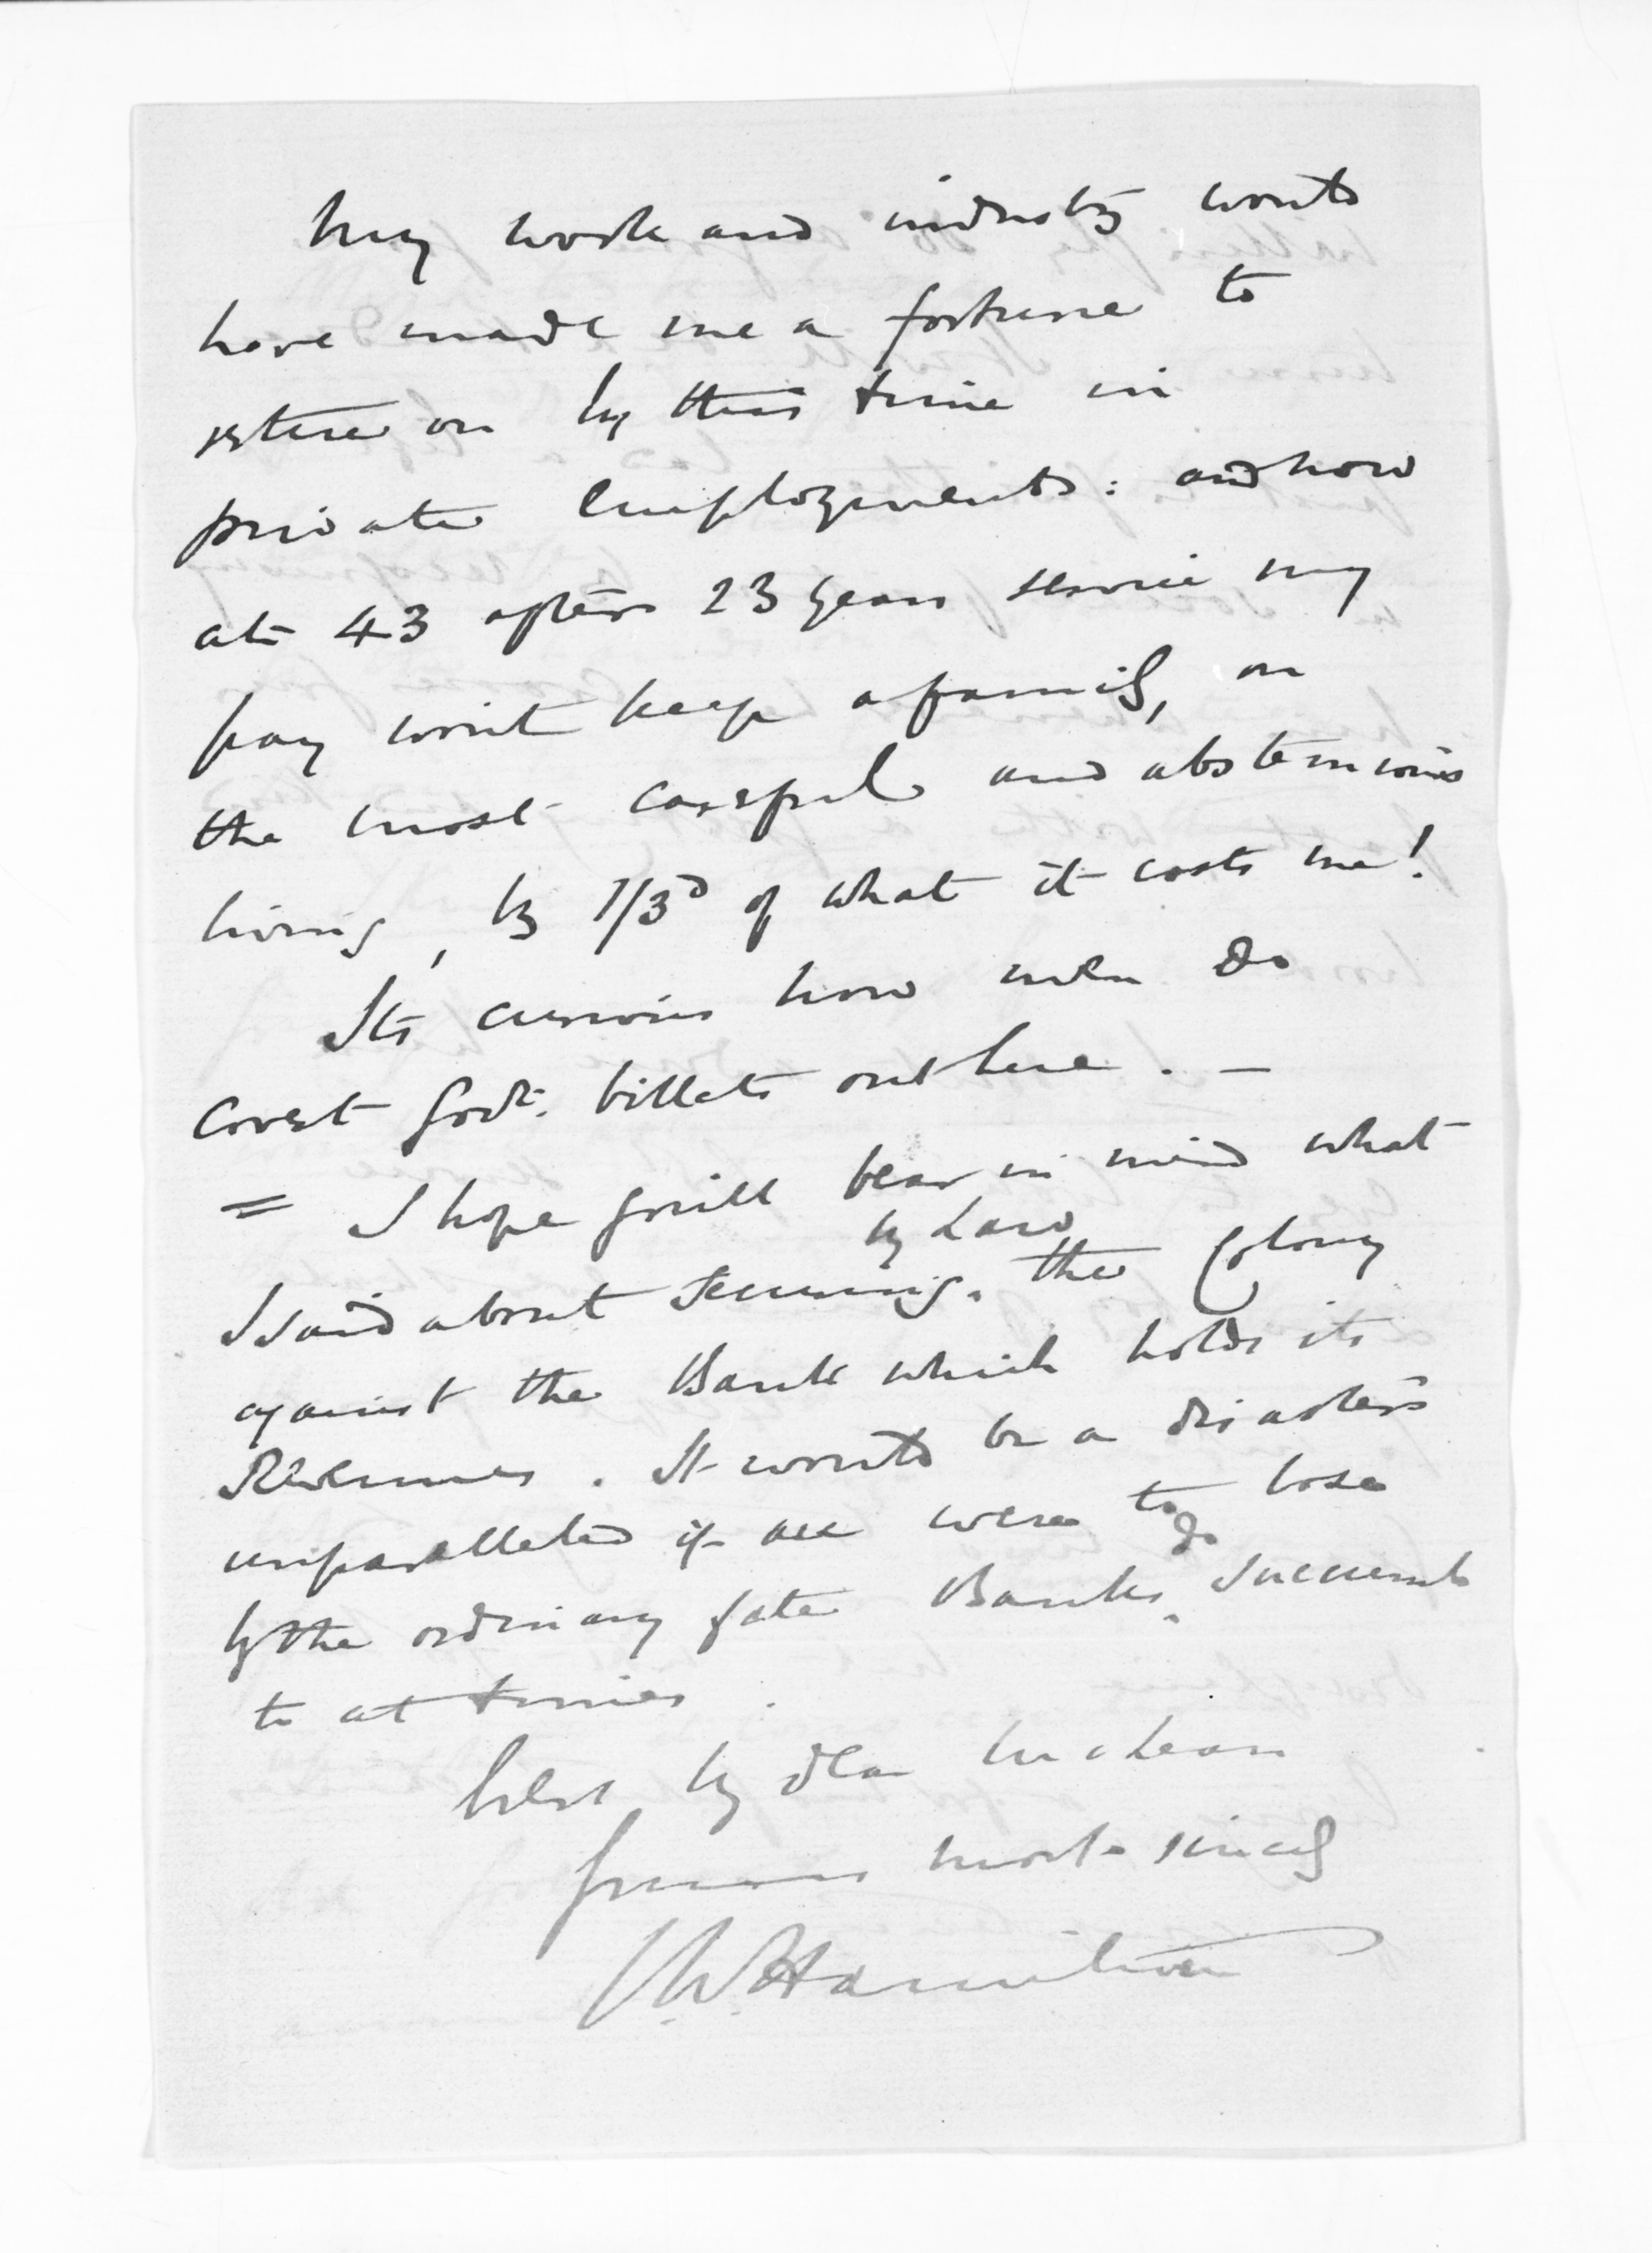 My work and industry would
have made me a fortune to
retire on by this time in
private employments: and now
at 43 after 23 years service my
pay won't keep a family, on
the most careful and abstemious
living, by 1/3d of what it costs me!
Its curious how men do
covet Govt. billets out here. —
= I hope you'll bear in mind what
I said about securing by Law the Colony
against the Bank which holds its
Revenues. It would be a disaster
unparalleled if all were to lose
by the ordinary fate Banks do succumb
to at times.
 my dear McLean
Yours most sincely
W. Hamilton